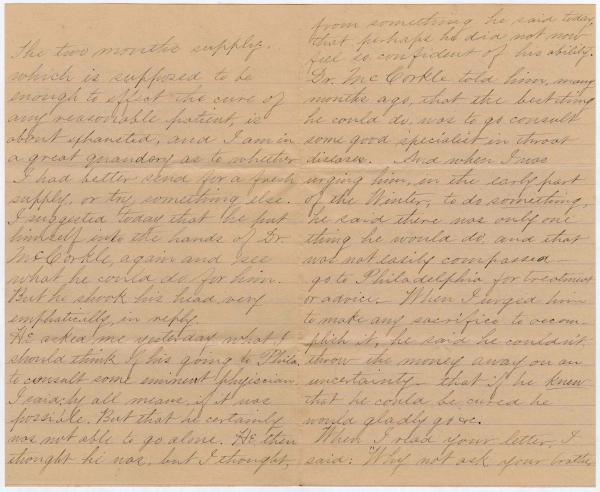 The two months supply,
which is supposed to be
enough to effect the cure of
any reasonable patient, is
about exhausted, and I am in
a great quandary as to whether
I had better send for a fresh
supply, or try something else.
I suggested today that he put
himself into the hands of Dr.
McCorkle, again and see
what he could do for him.
But he shook his head, very
emphatically, in reply.
He asked me yesterday what I
should think of his going to Phila.
to consult some eminent physician.
I said, by all means, if it was
possible. But that he certainly
was not able to go alone. He then
thought he was, but I thought,
from something he said today,
that perhaps he did not now
feel so confident of his ability.
Dr. McCorkle told him, many
months ago, that the best thing
he could do, was to go consult
some good specialist in throat
disease. And when I was
urging him, in the early part
of the Winter, to do something,
he said there was only one
thing he would do, and that
was not easily compassed—
go to Philadelphia for treatment
or advice. When I urged him
to make any sacrifice to accom-
plish it, he said he couldn't
throw the money away on an
uncertainty— that if he knew
that he could be cured he
would gladly go &c.
When I read your letter, I
said: "Why not ask your brother